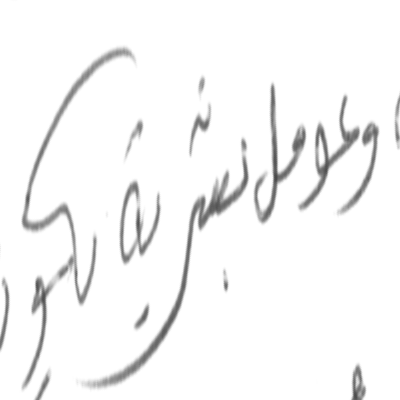 وعوامل بشرية تكون